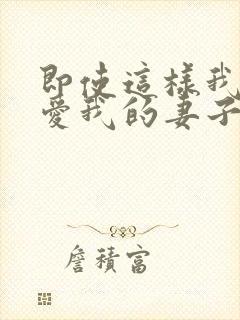 即使這樣我
愛我的妻子
詹積富